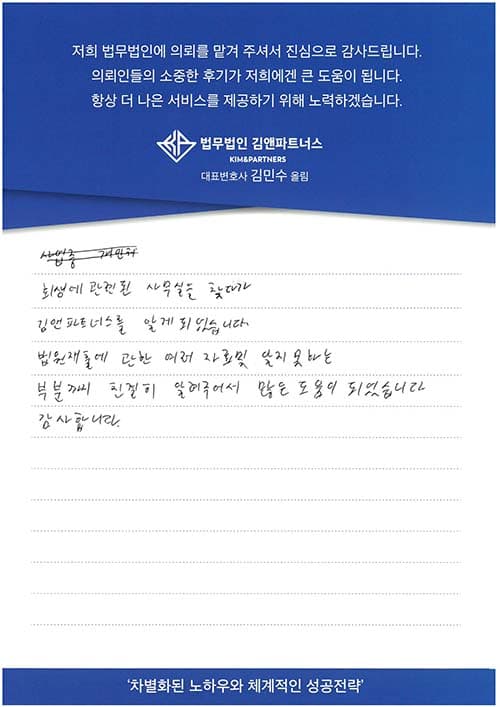 저희 법무법인에 의뢰를 맡겨 주셔서 진심으로 감사드립니다.
의뢰인들의 소중한 후기가 저희에겐 큰 도움이 됩니다.
항상 더 나은 서비스를 제공하기 위해 노력하겠습니다.
법무법인 김앤파트너스
KIM&PARTNERS
대표변호사 김민수 올림
회생에 관련된 사무실을 찾다가
김앤파트너스를 알게 되었습니다.
법원제출에 관한 여러 자료및 알지못하는
부분까지 친절히 알려주어서 많은 도움이 되었습니다
감사합니다.
'차별화된 노하우와 체계적인 성공전략'